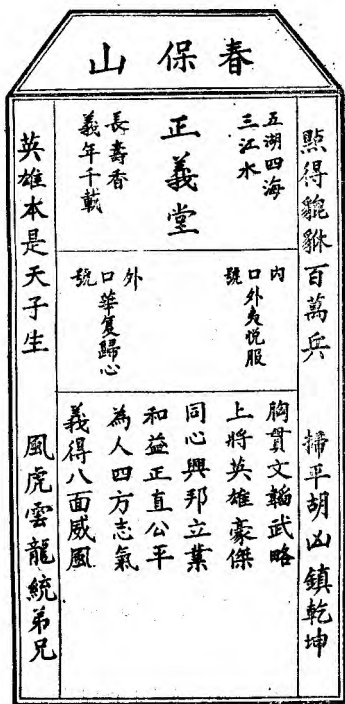 春保山
點得貔貅百萬兵
掃平胡凶鎮乾坤
五湖四海
三江水
正義堂
長壽香
義年千載
内口號
外夷悦服
外口號
華夏歸心
胸貫文韜武略
上將英雄豪傑
同心興邦立業
和益正直公平
為人四方志氣
義得八面威風
英雄本是天子生
風虎雲龍統弟兄